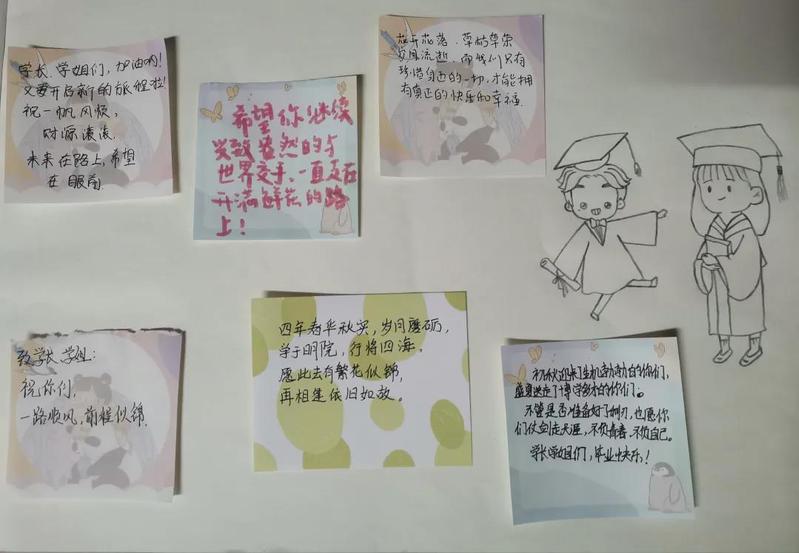 学长、学姐们，加油哟！
又要开启新的旅程啦！
祝一帆风顺，
财源滚滚。
未来在路上，希望
在眼前
希望你继续
兴致盎然的与
世界交手、一直走在
开满鲜花的路
上！
花开花落、草枯草荣
岁月流逝，而我们只有
珍惜自己的一切，才能拥
有真正的快乐和幸福
致学长、学姐：
祝你们，
一路顺风，前程似锦
四年春华秋实，岁月磨砺，
学于明院，行将四海。
愿此去有繁花似锦，
再相逢依旧如故。
秋天迎来了生机勃勃的你们，
盛夏送走了博学多才的你们。
不管是否准备好了铡刀，也愿你
们仗剑走天涯，不负青春、不负自己。
学长学姐们，毕业快乐！